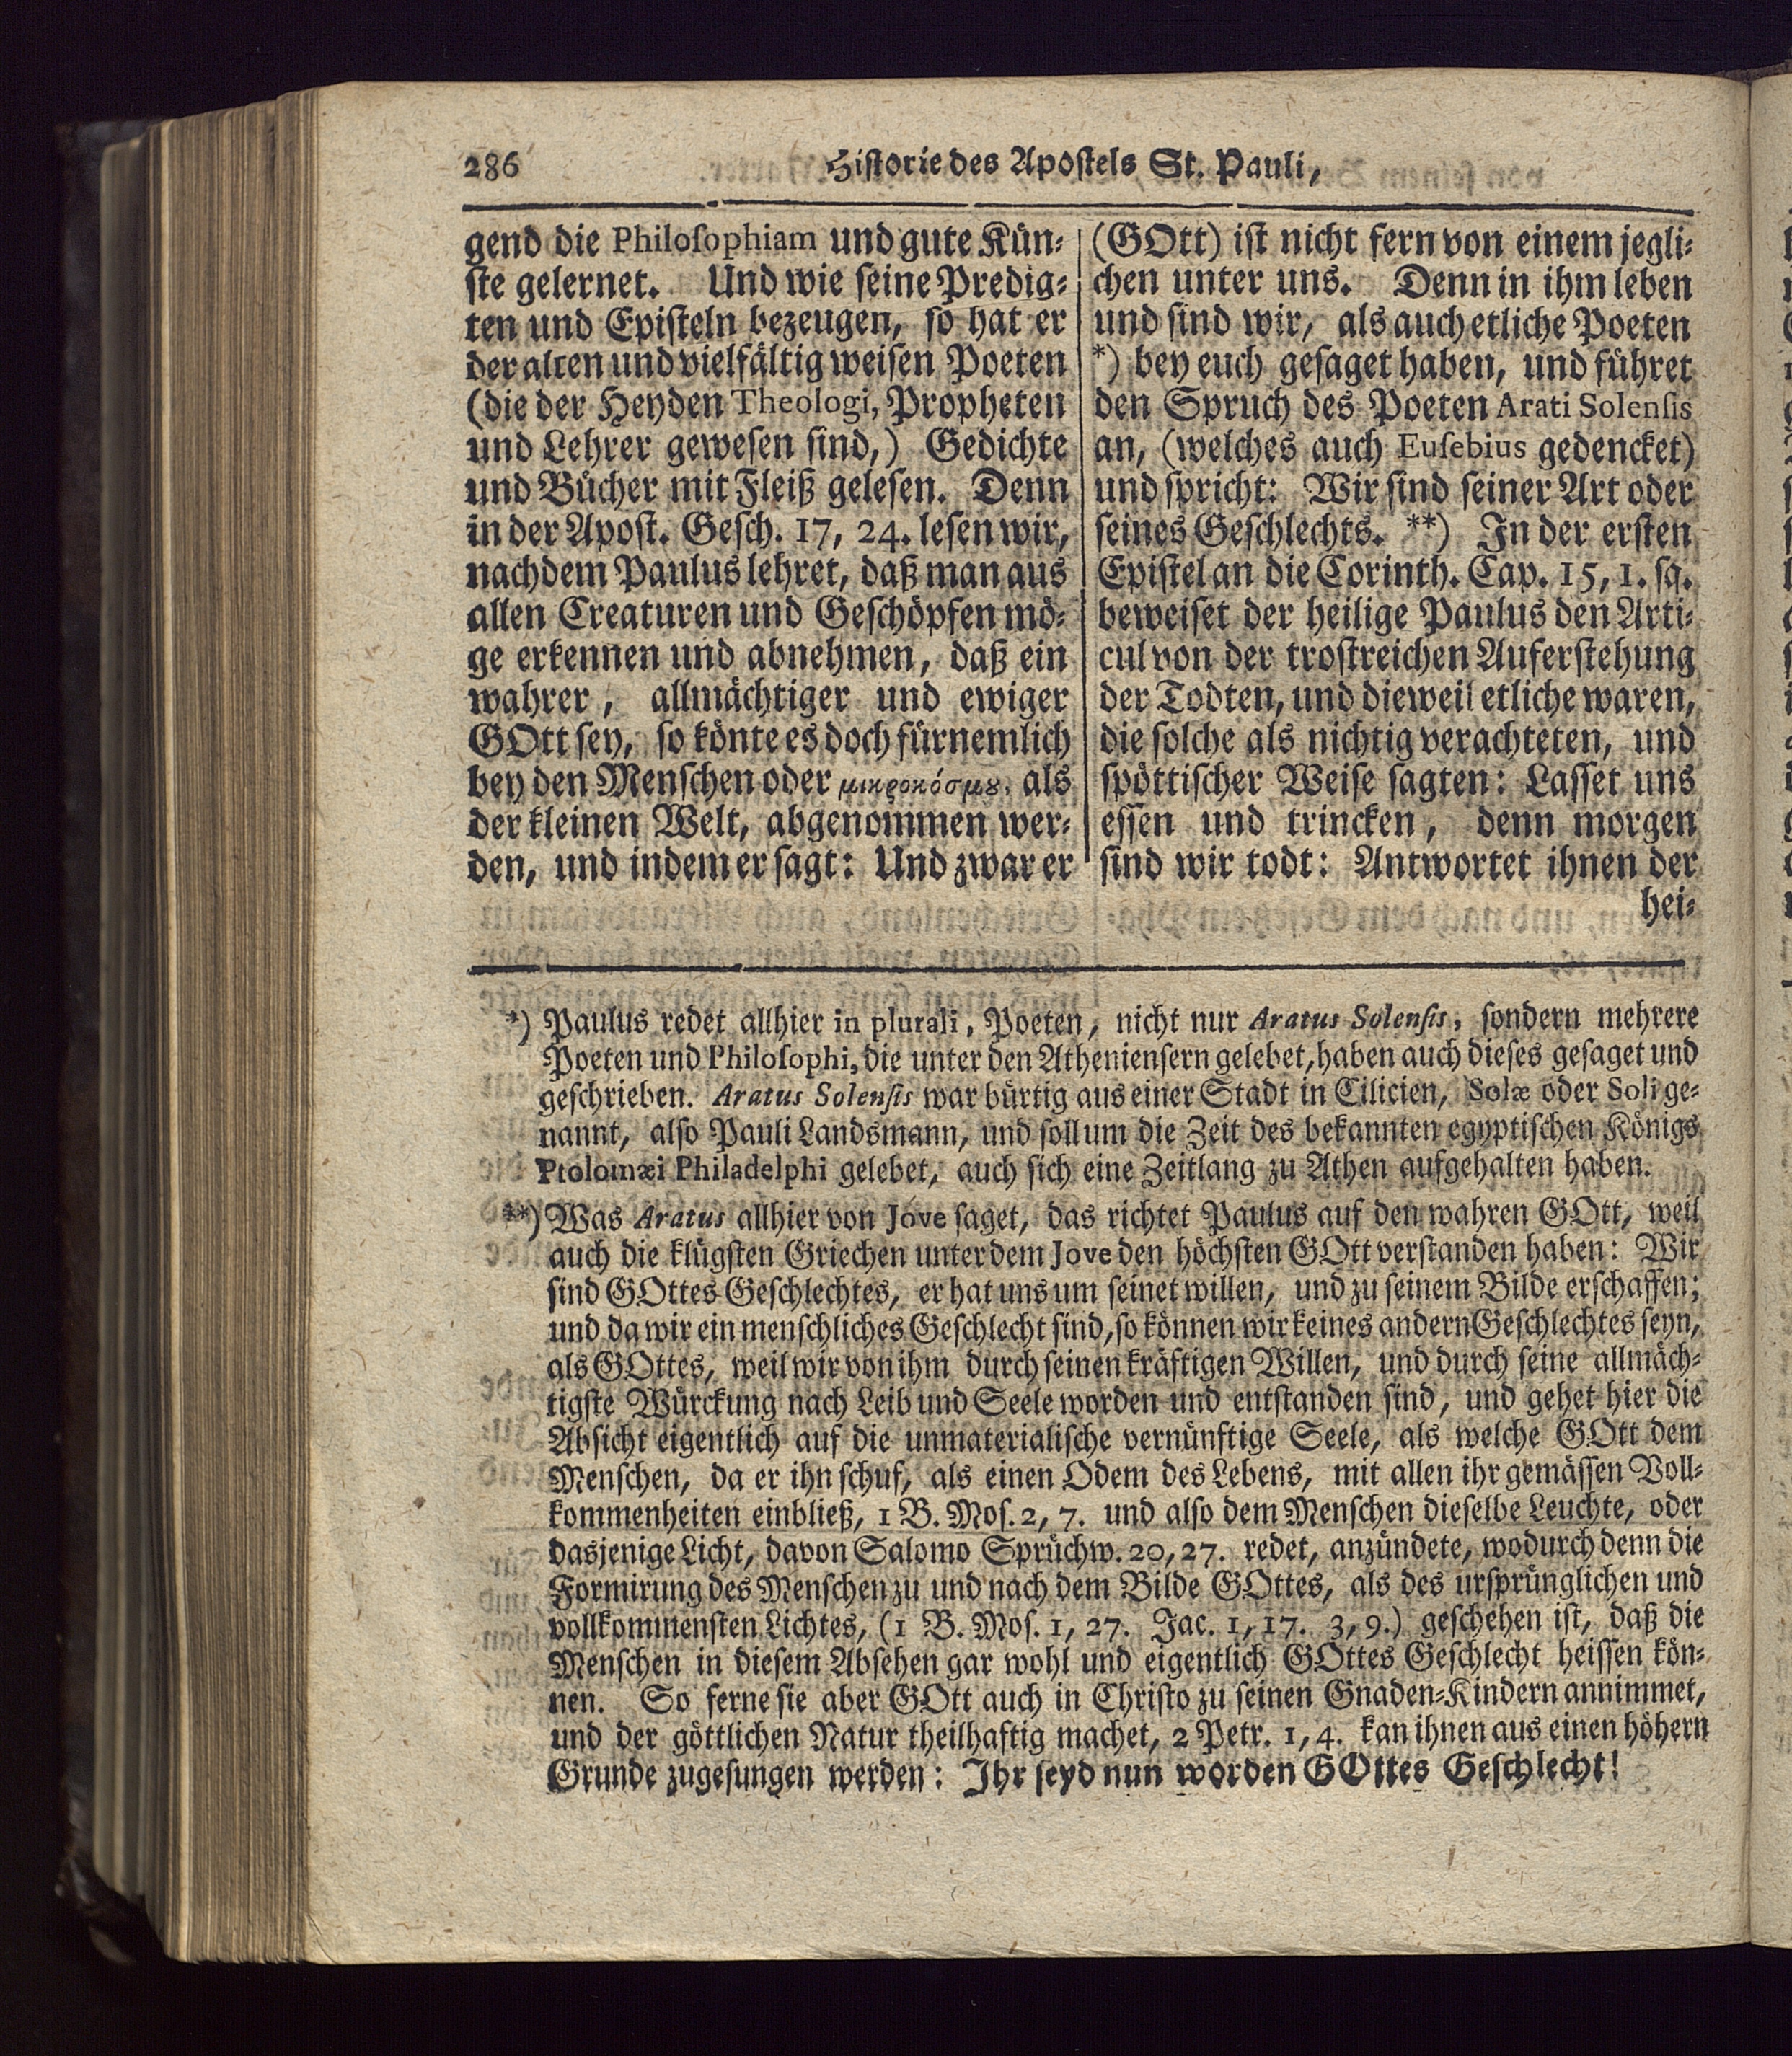 286 Historie des Apostels St. Pauli,
gend die Philosophiam und gute Kün-
ste gelernet. Und wie seine Predig-
ten und Episteln bezeugen, so hat er
der alten und vielfältig weisen Poeten
(die der Heyden Theologi, Propheten
und Lehrer gewesen sind,) Gedichte
und Bücher mit Fleiß gelesen. Denn
in der Apost. Gesch. 17, 24. lesen wir,
nachdem Paulus lehret, daß man aus
allen Creaturen und Geschöpfen mö-
ge erkennen und abnehmen, daß ein
wahrer, allmächtiger und ewiger
GOtt sey, so könte es doch fürnemlich
bey den Menschen oder μικροκόσμȣ, als
der kleinen Welt, abgenommen wer-
den, und indem er sagt: Und zwar er
(GOtt) ist nicht fern von einem jegli-
chen unter uns. Denn in ihm leben
und sind wir, als auch etliche Poeten
*) bey euch gesaget haben, und führet
den Spruch des Poeten Arati Solensis
an, (welches auch Eusebius gedencket)
und spricht: Wir sind seiner Art oder
seines Geschlechts. **) In der ersten
Epistel an die Corinth. Cap. 15, 1. sq.
beweiset der heilige Paulus den Arti-
cul von der trostreichen Auferstehung
der Todten, und dieweil etliche waren,
die solche als nichtig verachteten, und
spöttischer Weise sagten: Lasset uns
essen und trincken, denn morgen
sind wir todt: Antwortet ihnen der
hei-
*) Paulus redet allhier in plurali, Poeten, nicht nur Aratus Solensis, sondern mehrere
Poeten und Philosophi, die unter den Atheniensern gelebet, haben auch dieses gesaget und
geschrieben. Aratus Solensis war bürtig aus einer Stadt in Cilicien, Solæ oder Soli ge-
nannt, also Pauli Landsmann, und soll um die Zeit des bekannten egyptischen Königs
Ptolomæi Philadelphi gelebet, auch sich eine Zeitlang zu Athen aufgehalten haben.
**) Was Aratus allhier von Jove saget, das richtet Paulus auf den wahren GOtt, weil
auch die klügsten Griechen unter dem Jove den höchsten GOtt verstanden haben: Wir
sind GOttes Geschlechtes, er hat uns um seinet willen, und zu seinem Bilde erschaffen;
und da wir ein menschliches Geschlecht sind, so können wir keines andern Geschlechtes seyn,
als GOttes, weil wir von ihm durch seinen kräftigen Willen, und durch seine allmäch-
tigste Würckung nach Leib und Seele worden und entstanden sind, und gehet hier die
Absicht eigentlich auf die unmaterialische vernünftige Seele, als welche GOtt dem
Menschen, da er ihn schuf, als einen Odem des Lebens, mit allen ihr gemässen Voll-
kommenheiten einbließ, 1 B. Mos. 2, 7. und also dem Menschen dieselbe Leuchte, oder
dasjenige Licht, davon Salomo Sprüchw. 20, 27. redet, anzündete, wodurch denn die
Formirung des Menschen zu und nach dem Bilde GOttes, als des ursprünglichen und
vollkommensten Lichtes, (1 B. Mos. 1, 27. Jac. 1, 17. 3, 9.) geschehen ist, daß die
Menschen in diesem Absehen gar wohl und eigentlich GOttes Geschlecht heissen kön-
nen. So ferne sie aber GOtt auch in Christo zu seinen Gnaden-Kindern annimmet,
und der göttlichen Natur theilhaftig machet, 2 Petr. 1, 4. kan ihnen aus einen höhern
Grunde zugesungen werden: Ihr seyd nun worden GOttes Geschlecht!